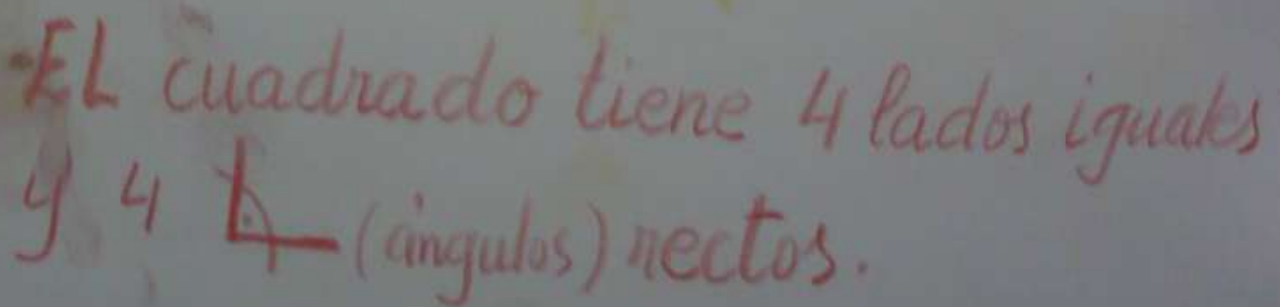 ·EL cuadrado tiene 4 lados iguales
y 4 (ángulos) rectos.